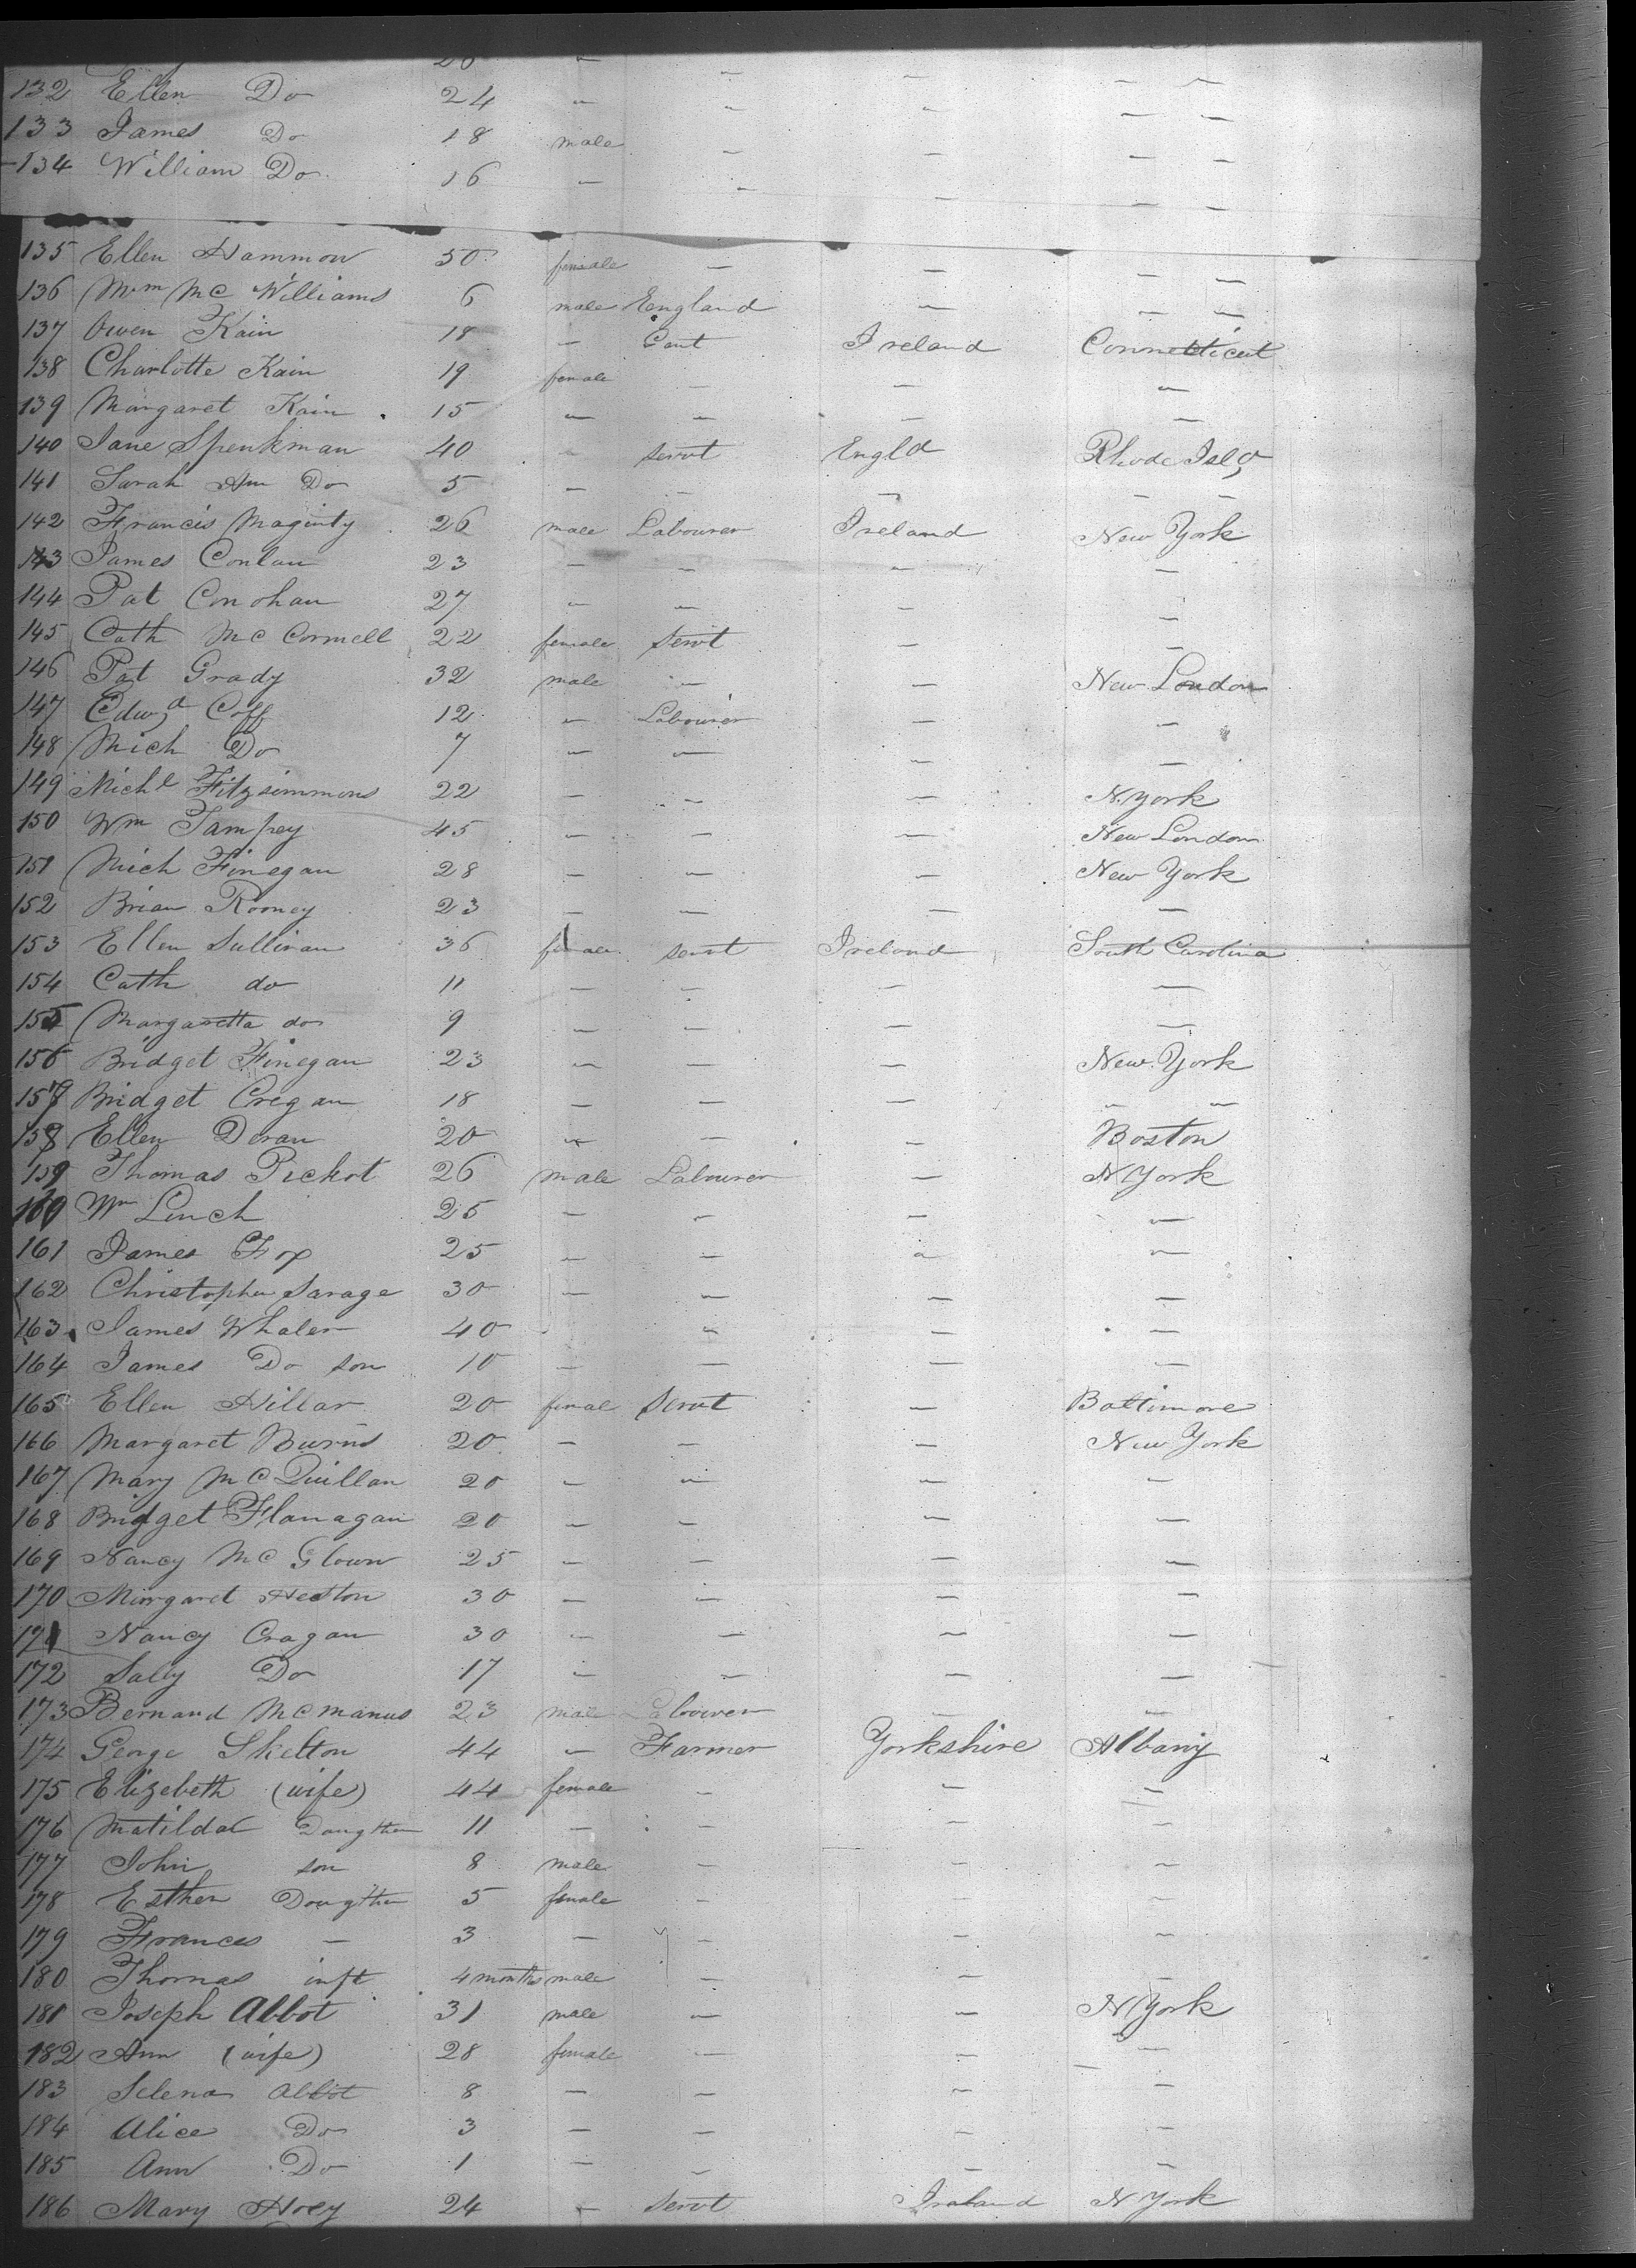 20 " – – – –
132 Ellen Do 24 " – – – –
133 James Do 18 male – – – –
134 William Do 16 – – – – –
135 Ellen Hammon 50 female – – – –
136 Wm Mc Williams 6 male England – – –
137 Owen Kain 18 – Cant Ireland Connecticut
138 Charlotte Kain 19 female – – –
139 Margaret Kain 15 – – – –
140 Jane Spenkman 40 – servt Engld Rhode Isld
141 Sarah Ann Do 5 – – – – –
142 Francis Maginty 26 male Labourer Ireland New York
143 James Conlan 23 – – – –
144 Pat Conohan 27 – – – –
145 Cath Mc Cormell 22 female Servt – –
146 Pat Grady 32 male – – New London
147 Edwd Coff 12 – Labourer – –
148 Mich Do 7 – – – –
149 Michl Fitzsimmons 22 – – – N. York
150 Wm Tampey 45 – – – New London
151 Mich Finegan 28 – – – New York
152 Brian Rooney 23 – – – –
153 Ellen Sullivan 36 female servt Ireland South Carolina
154 Cath do 11 – – – –
155 Margaretta do 9 – – – –
156 Bridget Finegan 23 – – – New York
157 Bridget Cregan 18 – – – – –
158 Ellen Doran 20 – – – Boston
159 Thomas Pickot 26 male Labourer – N York
160 Wm Linch 25 – – – –
161 James Fox 25 – – – –
162 Christopher Savage 30 – – – –
163 James Whaler 40 – – –
164 James Do son 10 – – – –
165 Ellen Hillar 20 femal Servt – Baltimore
166 Margaret Burns 20 – – – New York
167 Mary Mc Quillan 20 – – – –
168 Bridget Flanagan 20 – – – –
169 Nancy Mc Glown 25 – – – –
170 Margaret Heston 30 – – – –
171 Nancy Cragan 30 – – – –
172 Sally Do 17 – – – –
173 Bernard McManus 23 male Labourer – –
174 George Skelton 44 – Farmer Yorkshire Albany
175 Elizebeth (wife) 44 female – – –
176 Matilda Daugther 11 – – – –
177 John son 8 male – – –
178 Esther Dougther 5 female – – –
179 Frances – 3 – – – –
180 Thomas inft 4 months male – – –
181 Joseph Abbot 31 male – – N York
182 Ann (wife) 28 female – – –
183 Selena Abbot 8 – – – –
184 Alice Do 3 – – – –
185 Ann Do 1 – – – –
186 Mary Hoey 24 – Servt Ireland N York